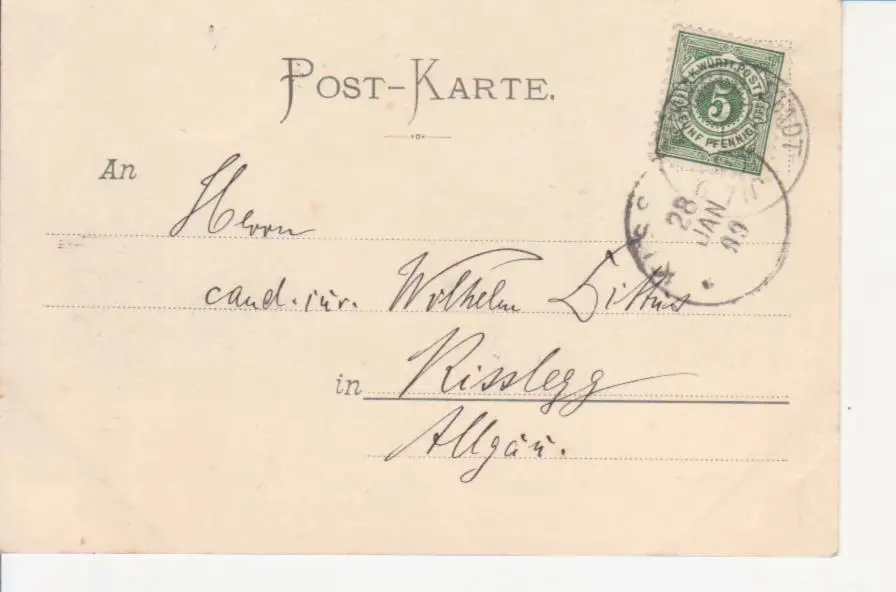 POST-KARTE.
K. WÜRTT. POST
5
FÜNF PFENNIG
28
JAN
99
An
Herrn
cand. iur. Wilhelm
in Kisslegg
Allgäu.